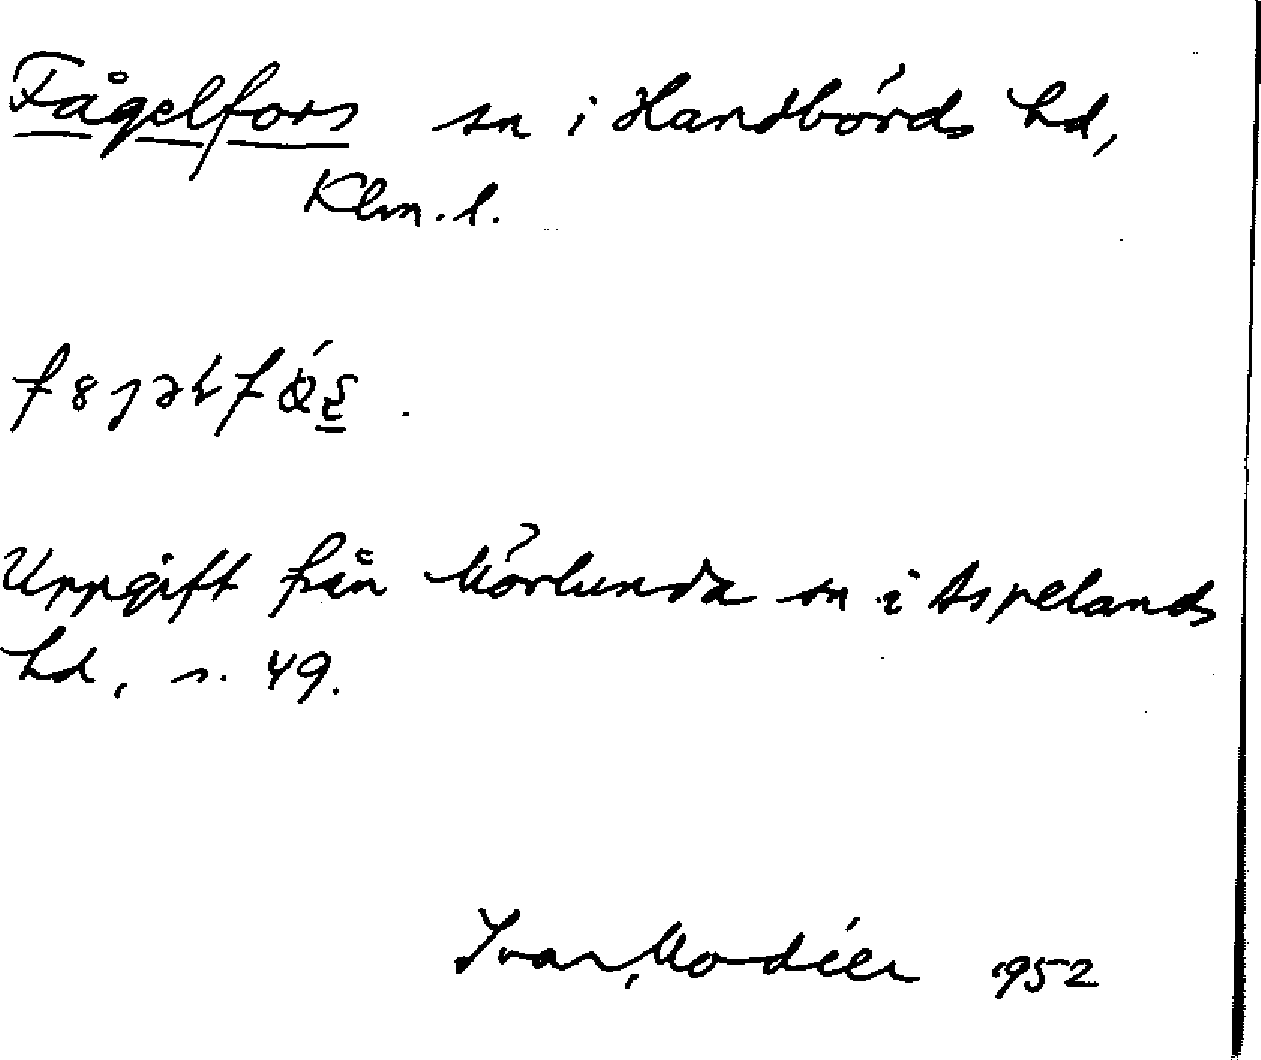 Fågelfors sn i Handbörds hd,
Klm. l.
Uppgift från Mörlunda sn i Aspelands
hd, s. 49.
Ivar Modéer 1952